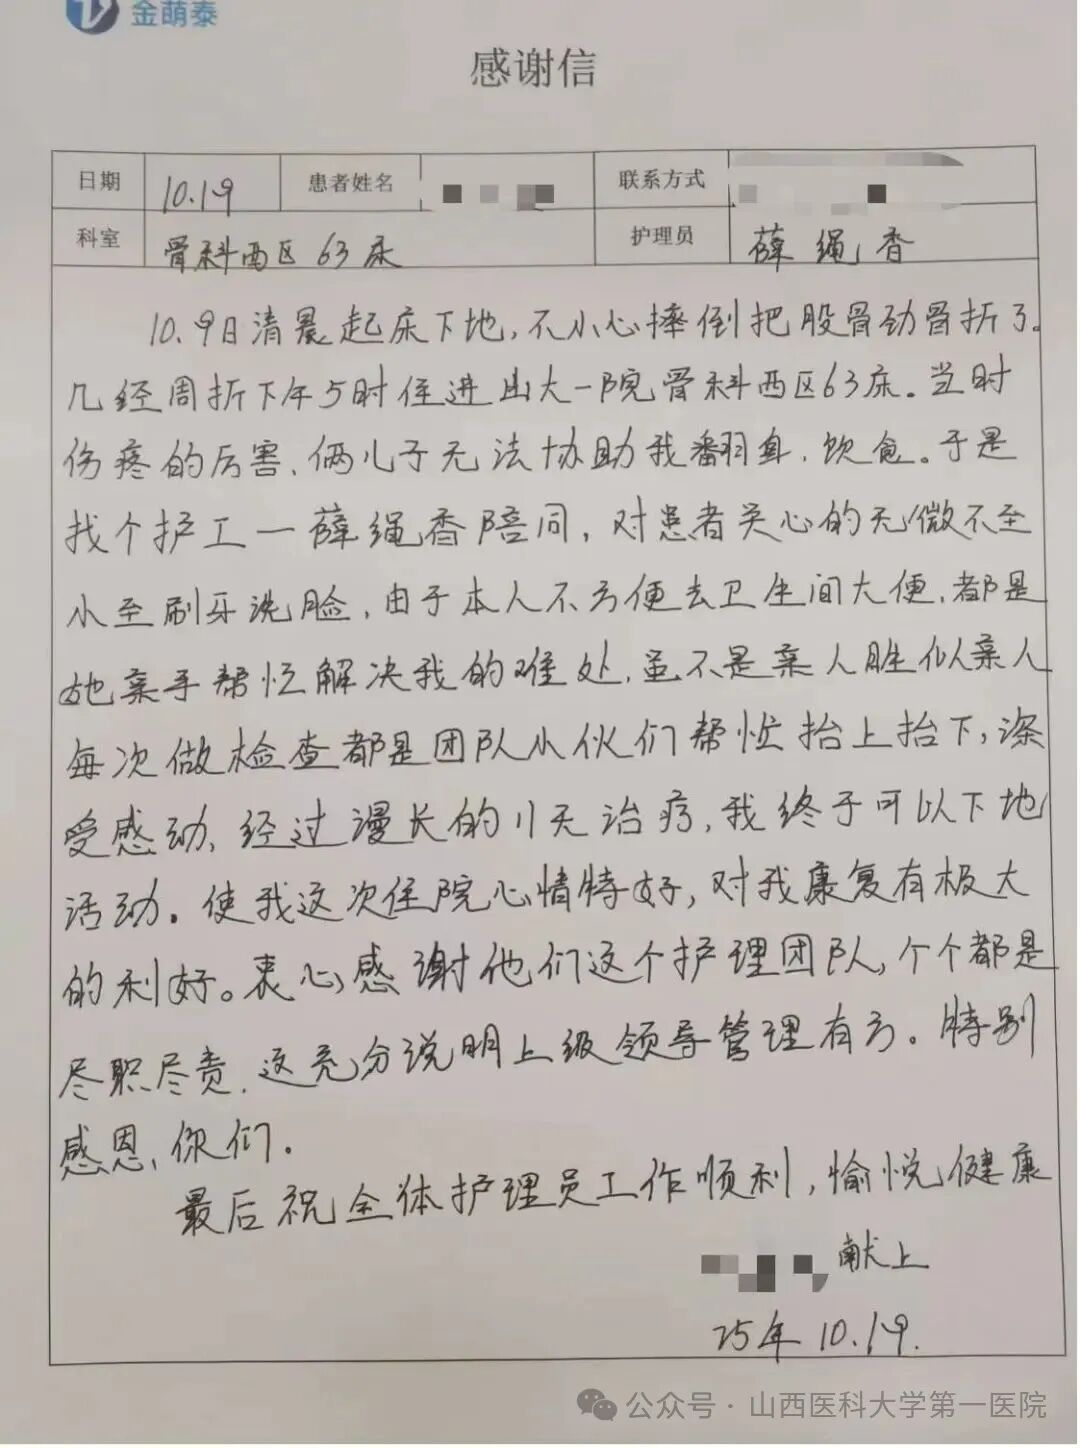 金萌泰
感谢信
日期 10.19 患者姓名 联系方式
科室 骨科西区 63床 护理员 薛绳香
10.9日清晨起床下地,不小心摔倒把股骨劲骨折了。
几经周折下午5时住进山大一院骨科西区63床。当时
伤疼的厉害、俩儿子无法协助我翻身、饮食。于是
找个护工一薛绳香陪同,对患者关心的无微不至
小至刷牙洗脸,由于本人不方便去卫生间大便,都是
她亲手帮忙解决我的难处,虽不是亲人胜似亲人
每次做检查都是团队小伙们帮忙抬上抬下,深
受感动、经过漫长的11天治疗,我终于可以下地
活动。使我这次住院心情特好,对我康复有极大
的利好。衷心感谢他们这个护理团队,个个都是
尽职尽责,这充分说明上级领导管理有方。特别
感恩、你们.
最后祝全体护理员工作顺利,愉悦健康
献上
25年10.19.
公众号·山西医科大学第一医院